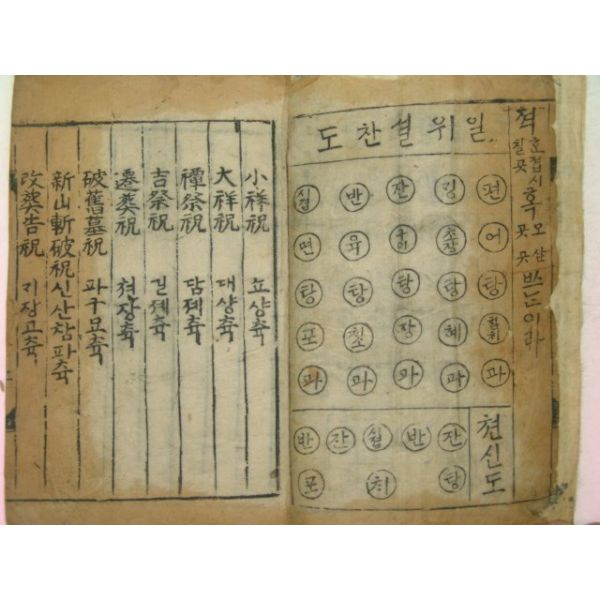 일위셜찬도
편 깅 잔 반 십
어 육 면
탕 탕 탕 탕 탕
혜 장 포
과 과 과 과 과
쳔신도
잔 반 잔 반
탕 포
小祥祝 쇼샹츅
大祥祝 대샹츅
禫祭祝 담졔츅
吉祭祝 길졔츅
遷葬祝 쳔장츅
破舊墓祝 파구묘츅
新山斬破祝 신산참파츅
改葬告祝 기장고츅